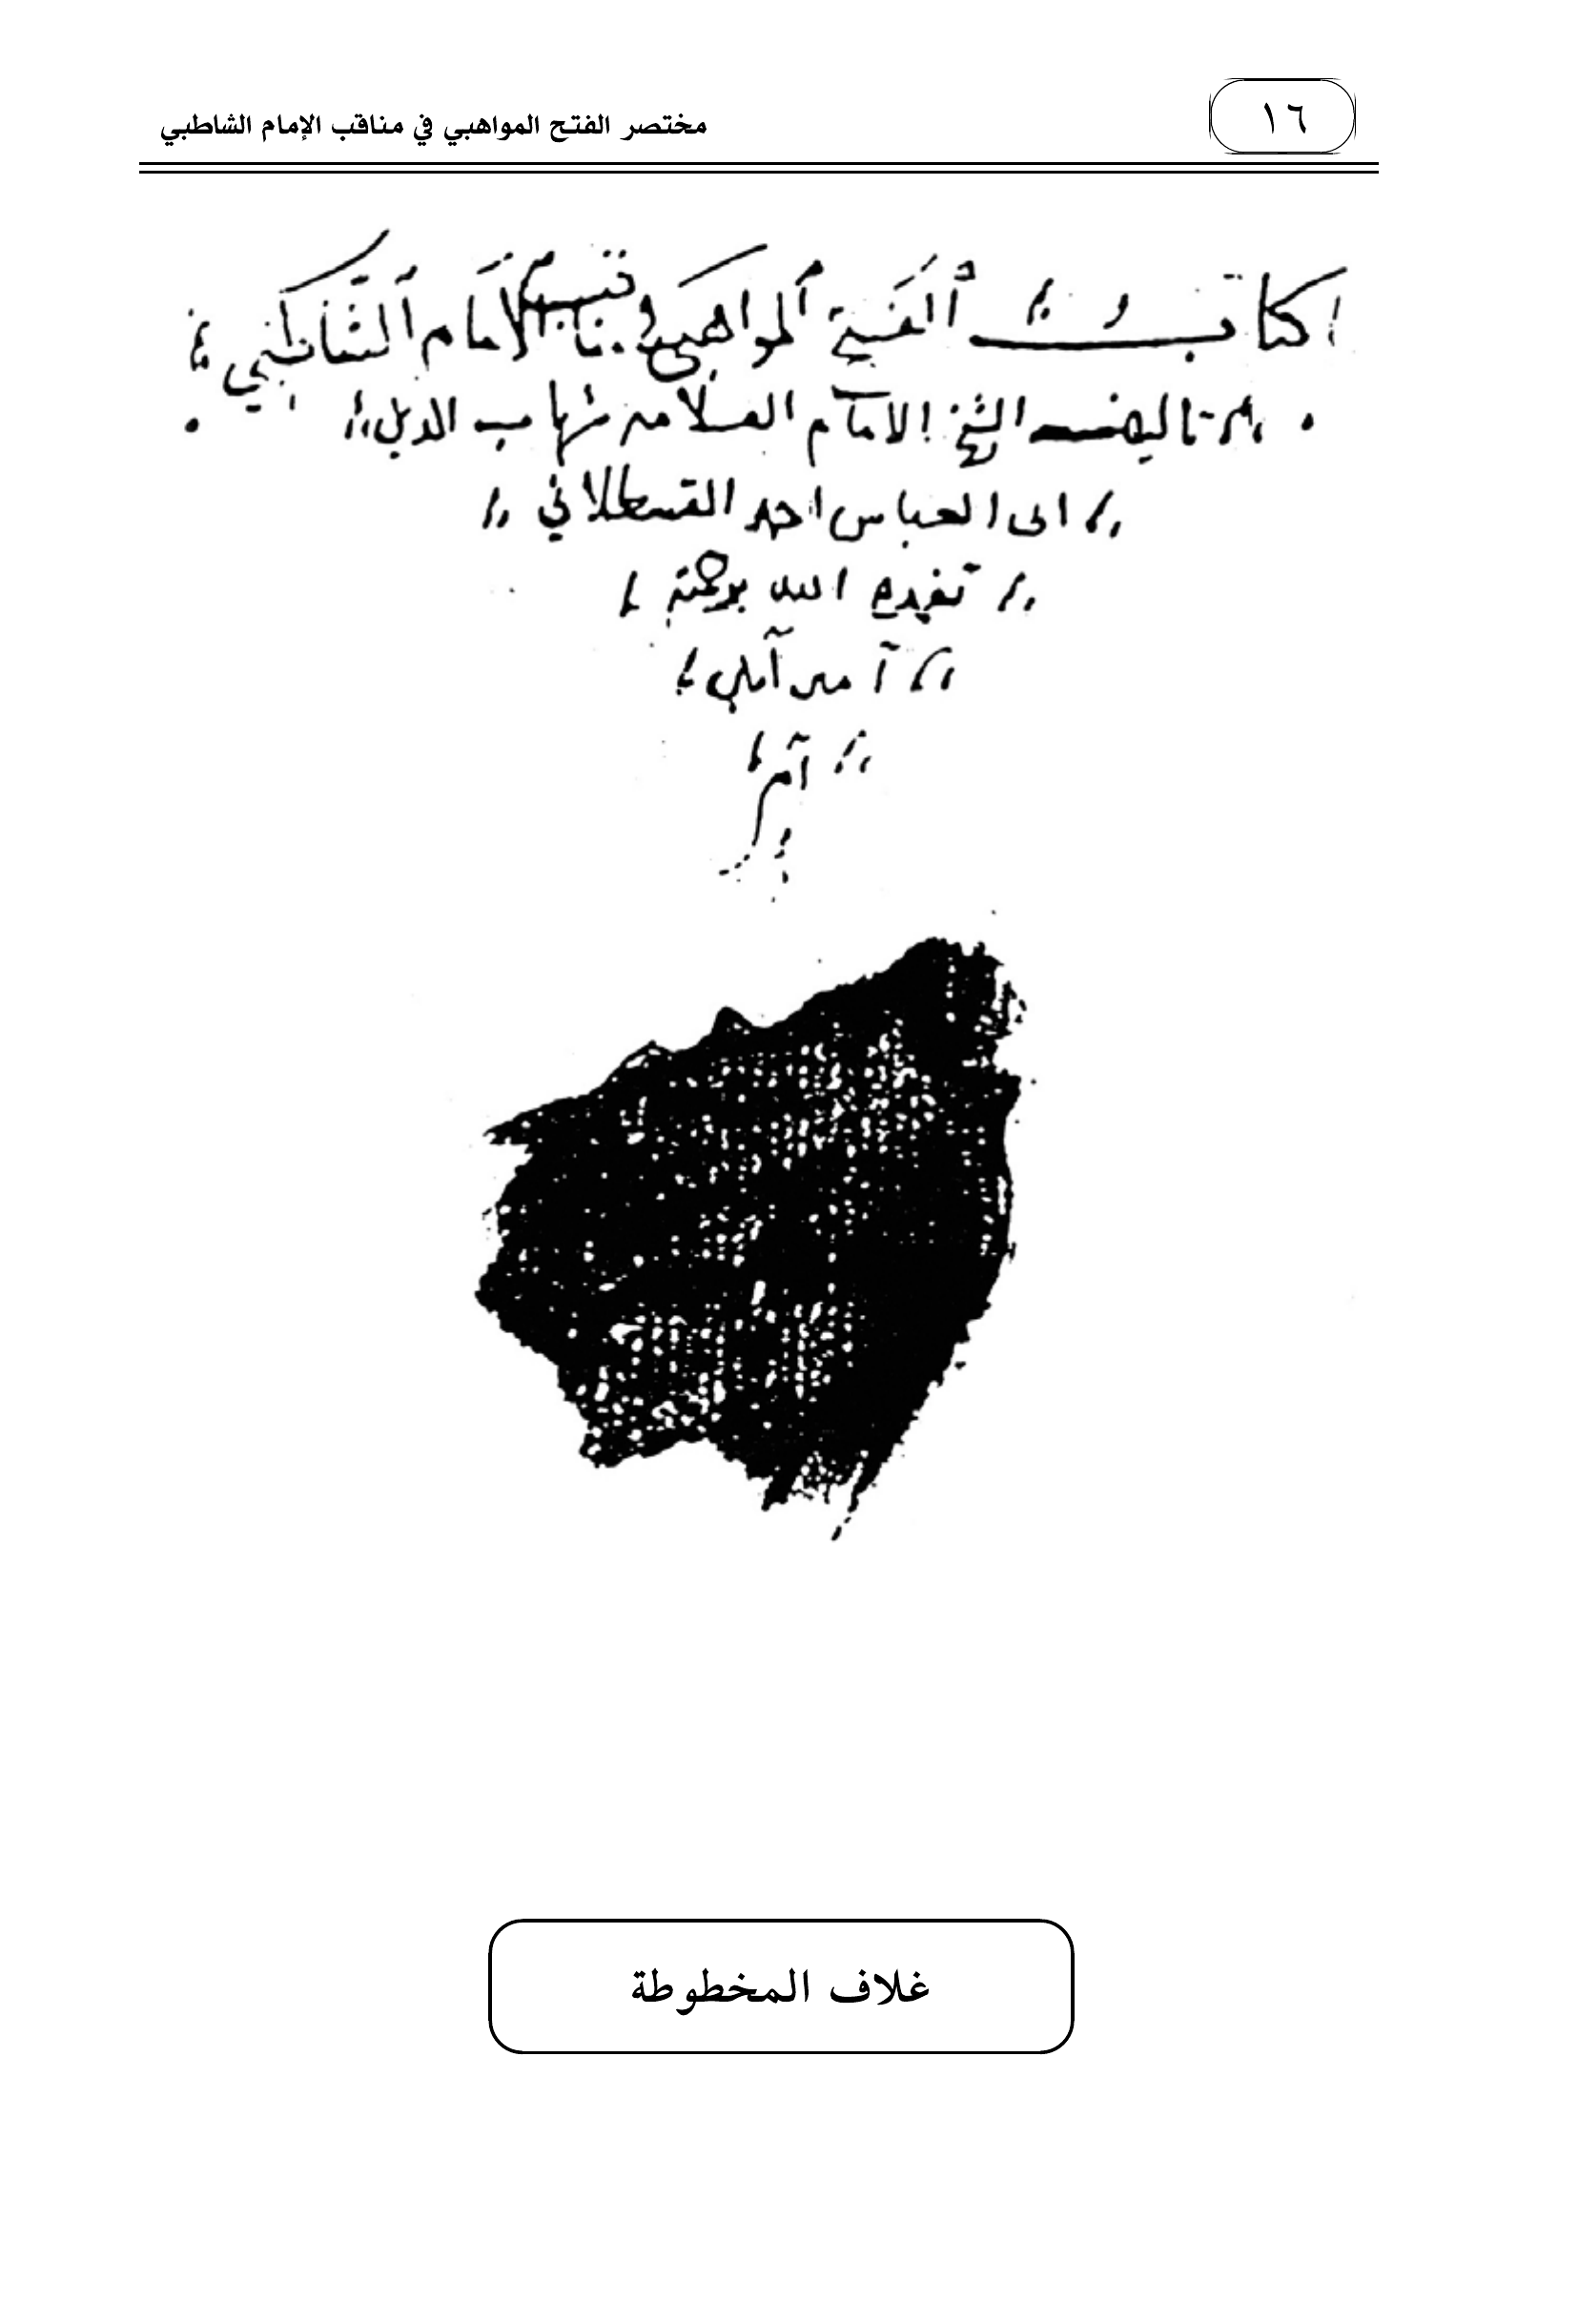 ١٦
مختصر الفتح المواهبي في مناقب الإمام الشاطبي
كتاب الفتح المواهبي في مناقب الإمام الشاطبي
تاليف الشيخ الامام العلامه شهاب الدين
ابى العباس احمد القسطلاني
تغمده الله برحمته
آمين آمين
آم
غلاف المخطوطة